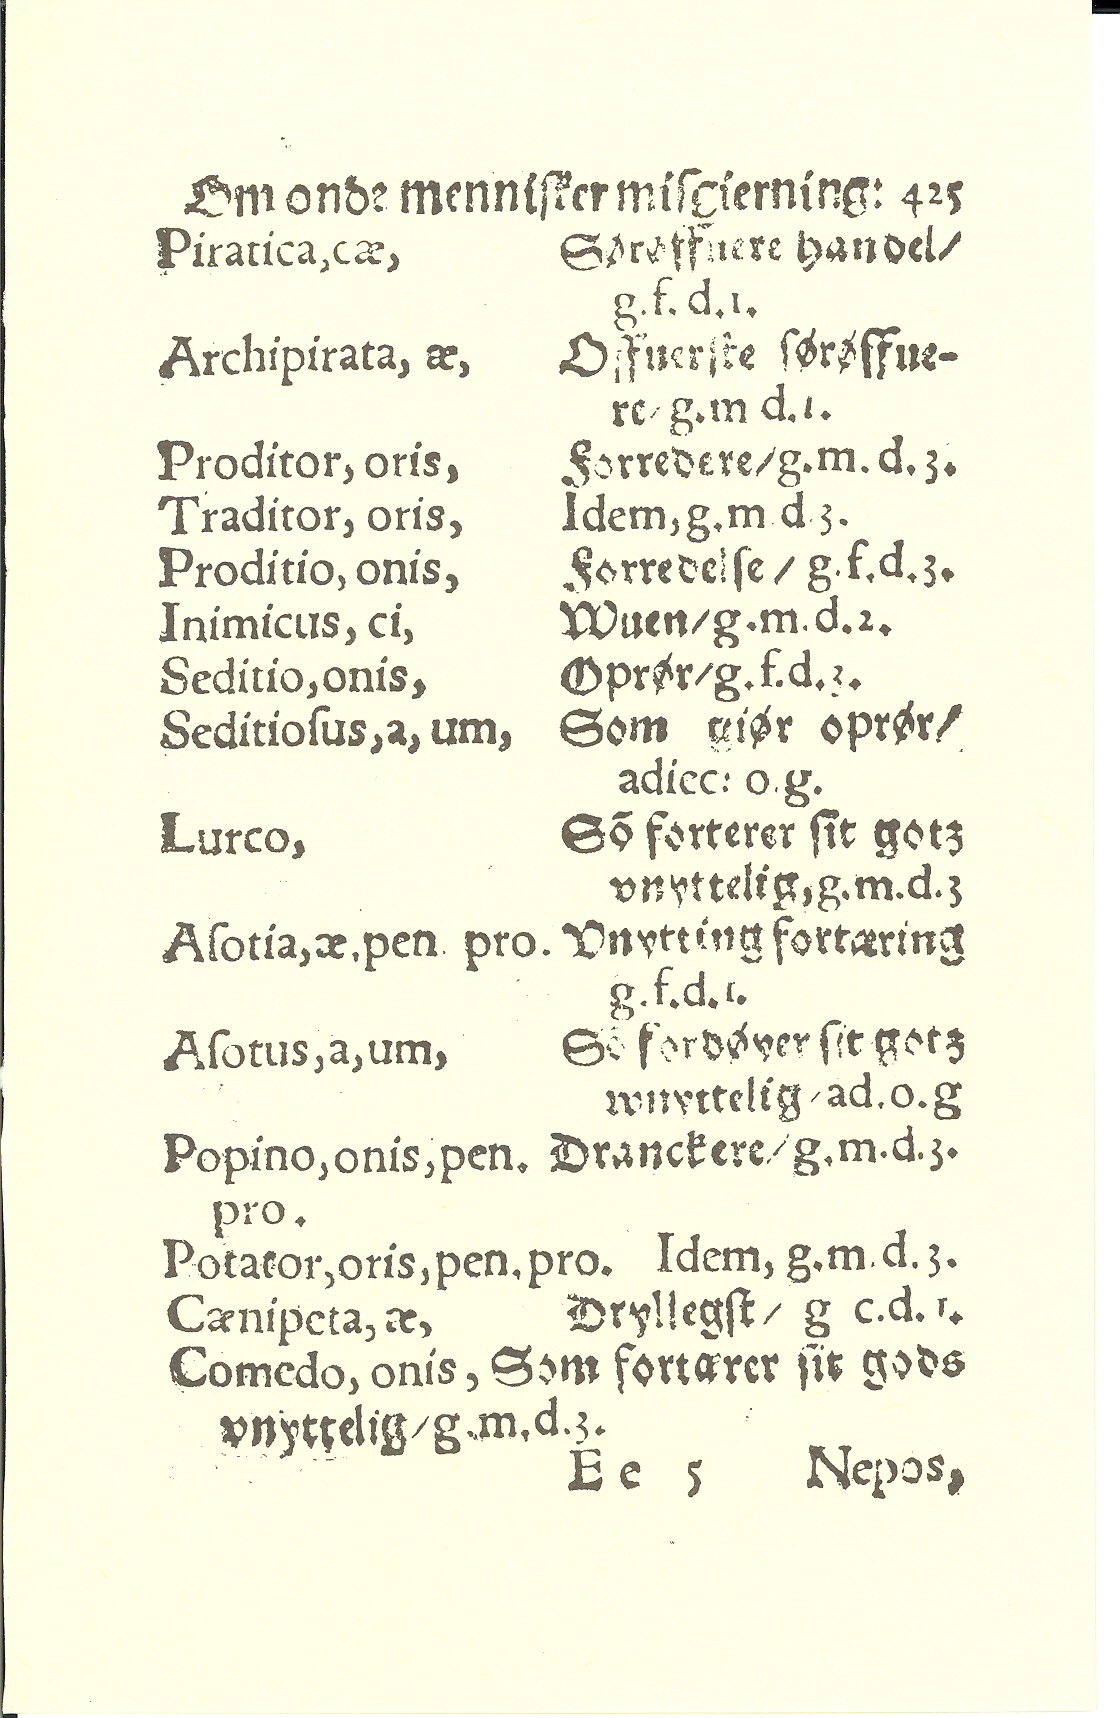 Om onde menniſker miſgierning: 425
Piratica,cæ, Sørøffuere handel/
g.f. d.1.
Archipirata, æ, Offuerſte ſørøffue-
re/ g.m d.1.
Proditor, oris, Forredere/g.m. d. 3.
Traditor, oris, Idem, g.m d 3.
Proditio, onis, Forredelſe / g.f.d.3.
Inimicus, ci, Wuen/g.m.d.2.
Seditio,onis, Oprør/g.f.d.3.
Seditioſus,a, um, Som giør oprør/
adiec: o.g.
Lurco, Sõ forterer ſit gotz
vnyttelig,g.m.d.3
Aſotia,æ,pen pro. Vnytting fortæring
g.f.d.1.
Aſotus,a,um, Sõ fordøyer ſit gotz
wnyttelig/ad.o.g
Popino,onis,pen. Dranckere/g.m.d.3.
pro.
Potator,oris,pen.pro. Idem, g.m.d.3.
Cænipeta, æ, Dryllegſt/ g c.d.1.
Comedo, onis, Som fortærer ſit gods
vnyttelig/g.m.d.3.
E e 5 Nepos,